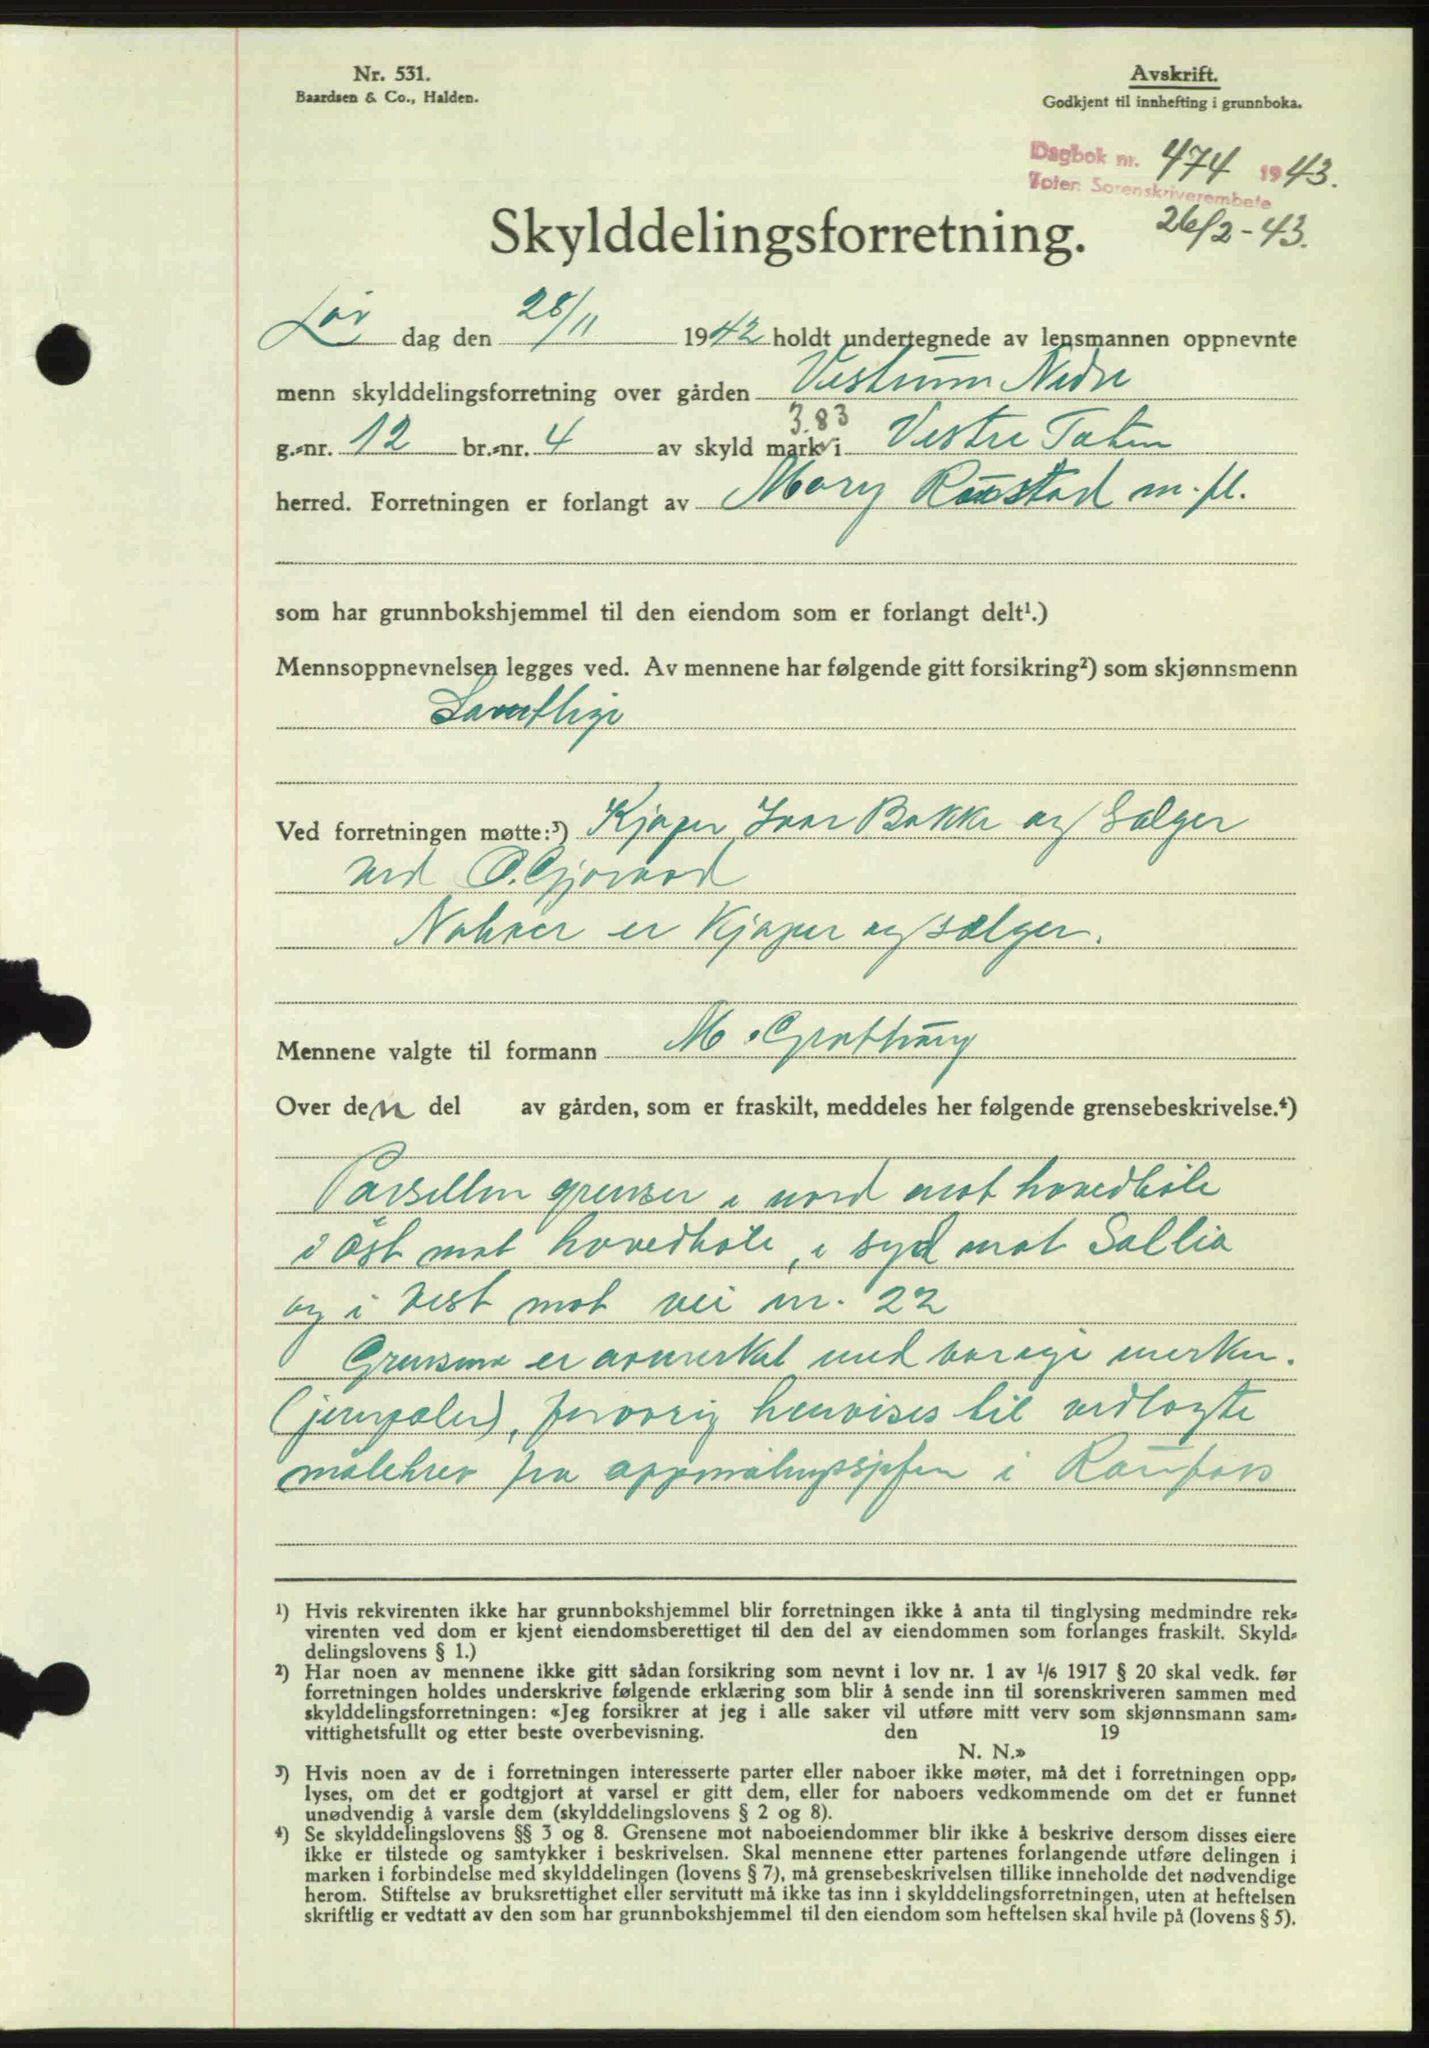 Nr. 531.
Baardsen & Co., Halden.
Avskrift.
Godkjent til innhefting i grunnboka.
Dagbok nr. 474 1943.
Toten Sorenskriverembete
26/2-43.
Skylddelingsforretning.
Lør dag den 28/11 1942 holdt undertegnede av lensmannen oppnevnte
menn skylddelingsforretning over gården Vestrum Nedre
3.83
g.-nr. 12 br.-nr. 4 av skyld mark i Vestre Toten
herred. Forretningen er forlangt av Mary Raustad m. fl.
som har grunnbokshjemmel til den eiendom som er forlangt delt¹.)
Mennsoppnevnelsen legges ved. Av mennene har følgende gitt forsikring²) som skjønnsmenn
Samtlige
Ved forretningen møtte:³) Kjøper Ivar Bakke og Sælger
ved O. Gjørvad
Naboer er Kjøper og sælger.
Mennene valgte til formann M. Grøttung
Over den del av gården, som er fraskilt, meddeles her følgende grensebeskrivelse.⁴)
Parsellen grenser i nord mot hovedbøle
i øst mot hovedbøle, i syd mot Sollia
og i vest mot vei nr. 22
Grensene er avmerket med varige merker.
(jernpæler), forøvrig henvises til vedlagte
målebrev fra oppmålingssjefen i Raufoss
¹) Hvis rekvirenten ikke har grunnbokshjemmel blir forretningen ikke å anta til tinglysing medmindre rek-
virenten ved dom er kjent eiendomsberettiget til den del av eiendommen som forlanges fraskilt. Skyld-
delingslovens § 1.)
²) Har noen av mennene ikke gitt sådan forsikring som nevnt i lov nr. 1 av 1/6 1917 § 20 skal vedk. før
forretningen holdes underskrive følgende erklæring som blir å sende inn til sorenskriveren sammen med
skylddelingsforretningen: «Jeg forsikrer at jeg i alle saker vil utføre mitt verv som skjønnsmann sam-
vittighetsfullt og etter beste overbevisning. den 19
N. N.»
³) Hvis noen av de i forretningen interesserte parter eller naboer ikke møter, må det i forretningen opp-
lyses, om det er godtgjort at varsel er gitt dem, eller for naboers vedkommende om det er funnet
unødvendig å varsle dem (skylddelingslovens § 2 og 8).
⁴) Se skylddelingslovens §§ 3 og 8. Grensene mot naboeiendommer blir ikke å beskrive dersom disses eiere
ikke er tilstede og samtykker i beskrivelsen. Skal mennene etter partenes forlangende utføre delingen i
marken i forbindelse med skylddelingen (lovens § 7), må grensebeskrivelsen tillike inneholde det nødvendige
herom. Stiftelse av bruksrettighet eller servitutt må ikke tas inn i skylddelingsforretningen, uten at heftelsen
skriftlig er vedtatt av den som har grunnbokshjemmel til den eiendom som heftelsen skal hvile på (lovens § 5).